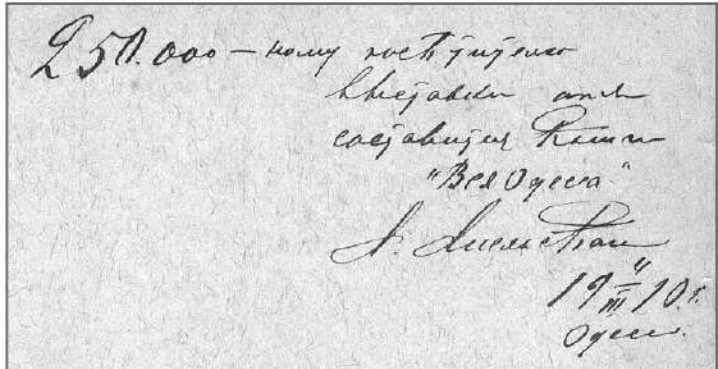 250.000 — ному посѣтителю
Выставки отъ
составителя Книги
"Вся Одесса"
19 III 10 г.
Одесса.